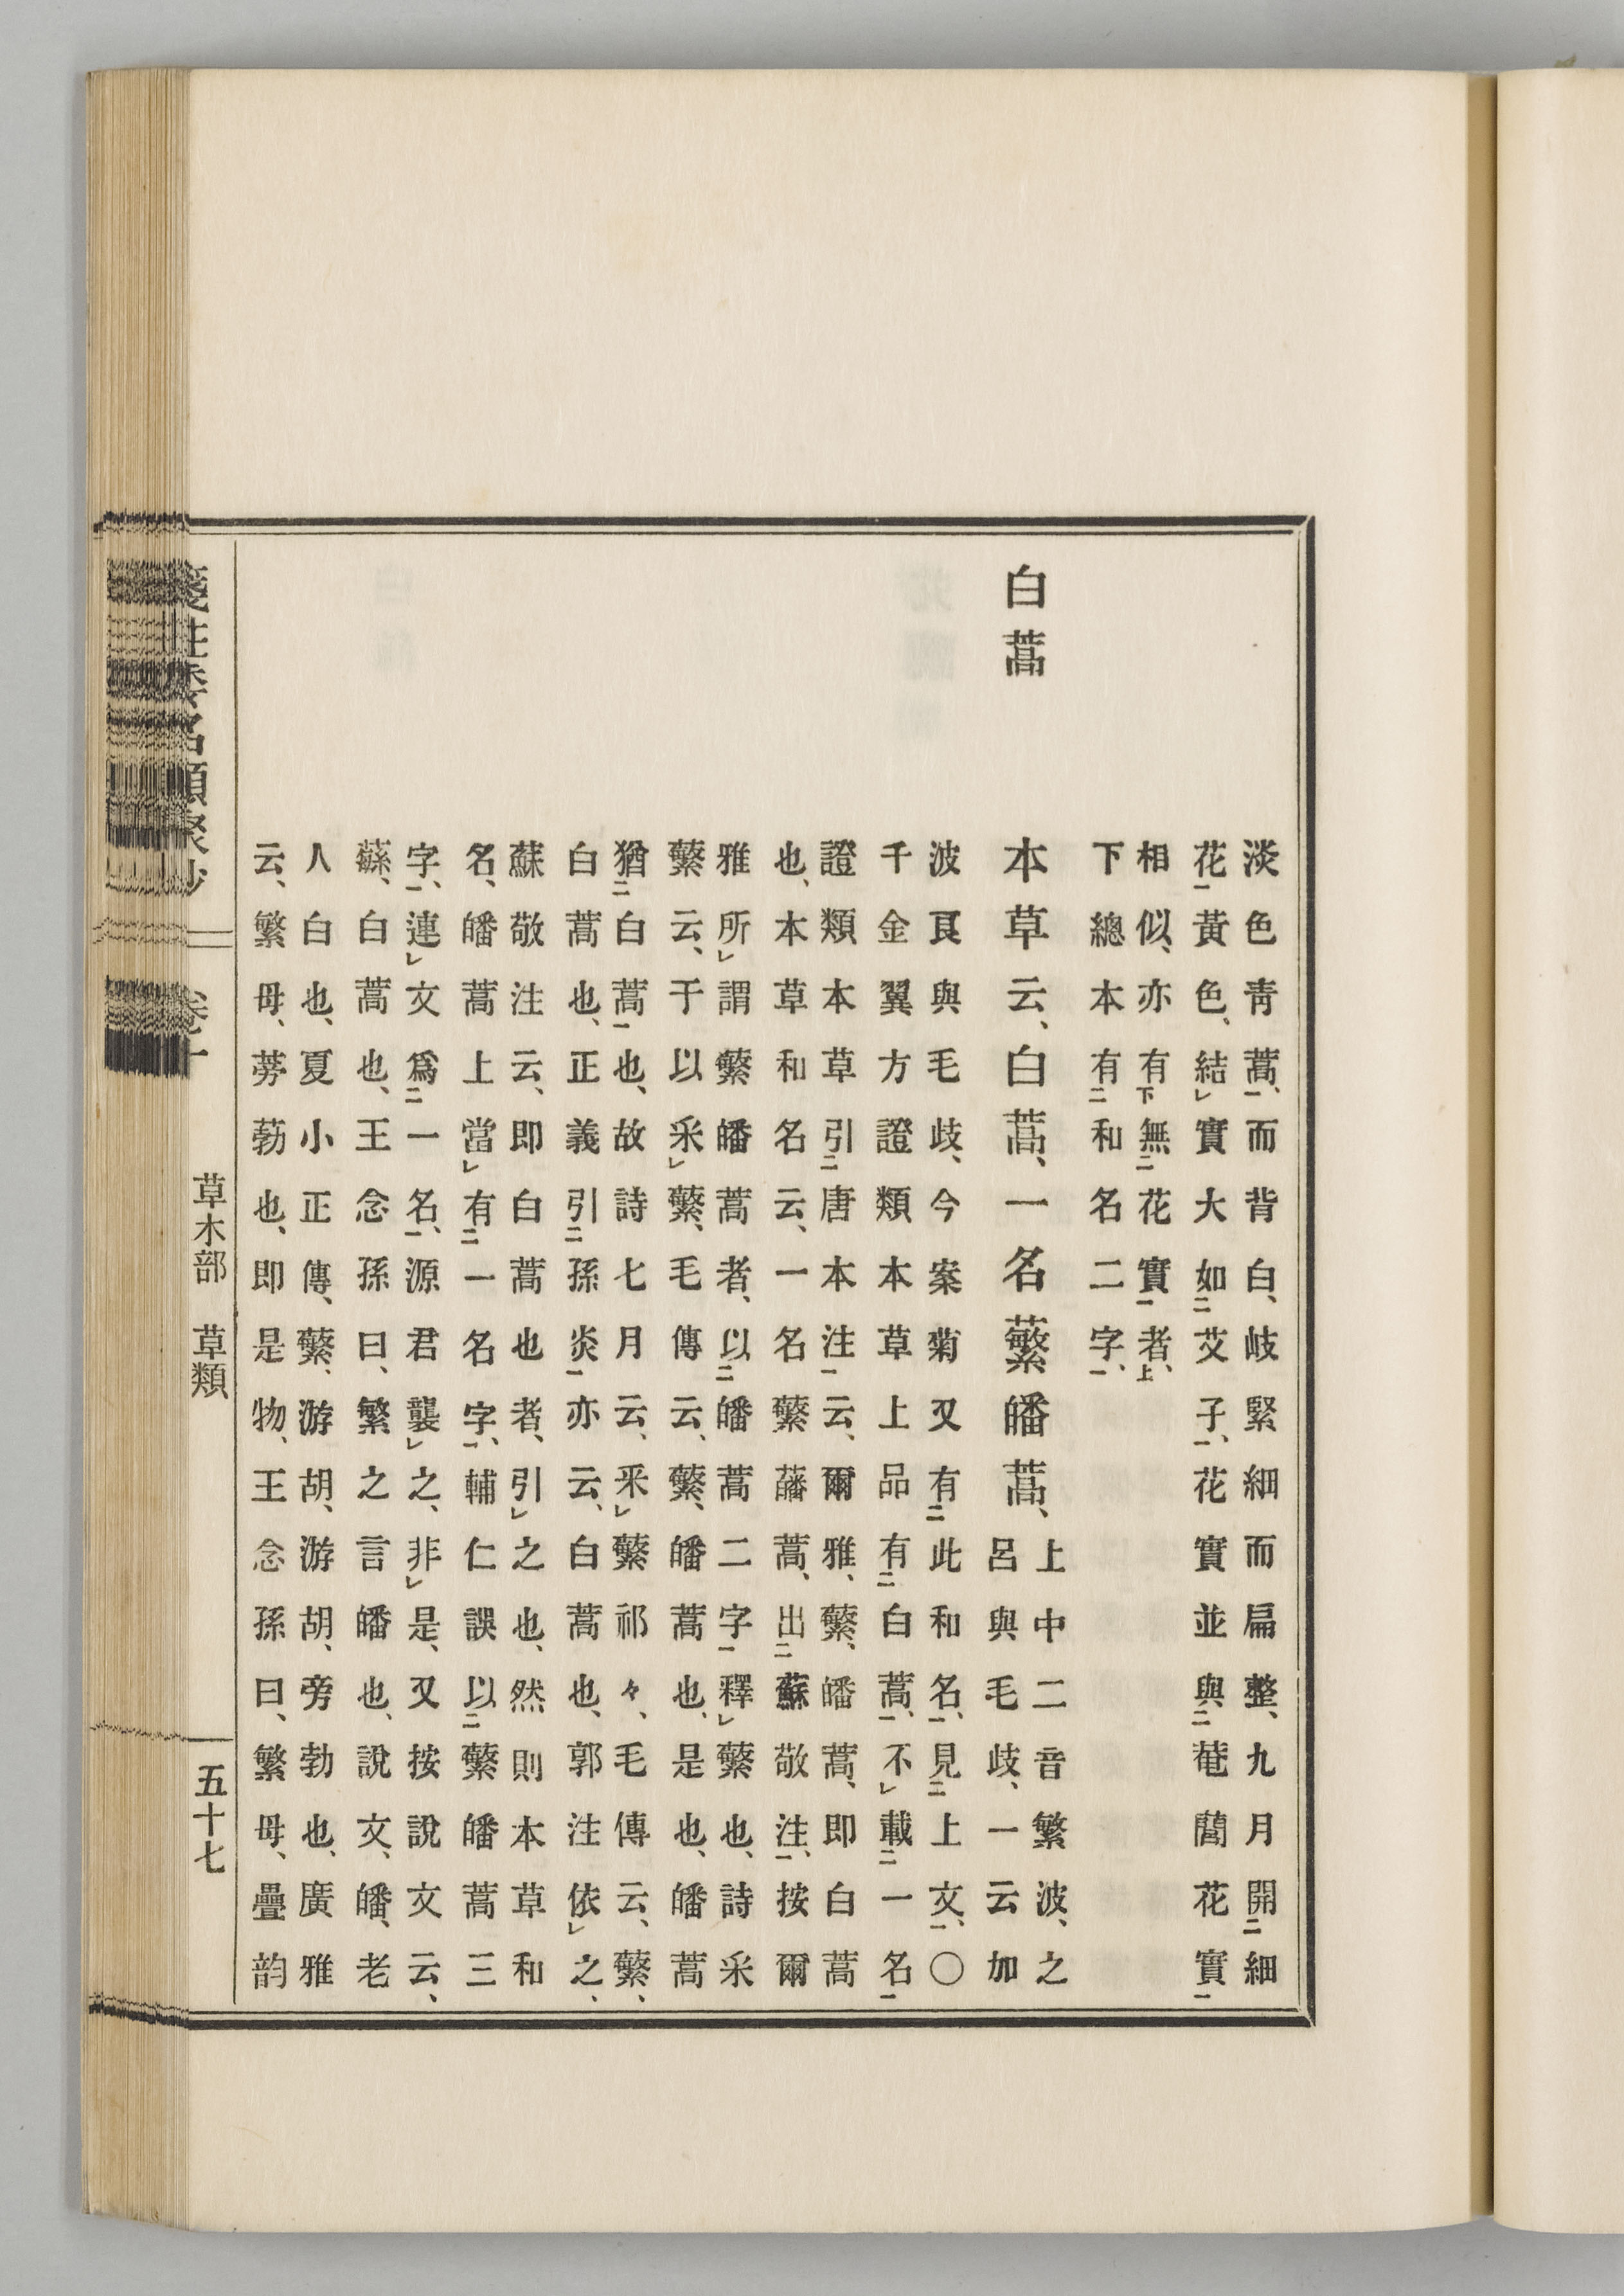 淡色青蒿、而背白、岐緊細而扁整、九月開細
花黃色、結實大如艾子、花實並與菴䕡花實
相似、亦有無花實者、
下總本有和名二字、
白蒿
本草云、白蒿、一名蘩皤蒿、
上中二音繁波、之
呂與毛歧、一云加
波艮與毛歧、今案菊又有此和名、見上文、〇
千金翼方證類本草上品有白蒿、不載一名
證類本草引唐本注云、爾雅、蘩、皤蒿、即白蒿
也、本草和名云、一名蘩蟠蒿、出蘇敬注、按爾
雅所謂蘩皤蒿者、以皤蒿二字釋蘩也、詩采
蘩云、于以采蘩、毛傳云、蘩、皤蒿也、是也、皤蒿
猶白蒿也、故詩七月云、采蘩祁々、毛傳云、蘩、
白蒿也、正義引孫炎亦云、白蒿也、郭注依之、
蘇敬注云、即白蒿也者、引之也、然則本草和
名、皤蒿上當有一名字、輔仁誤以蘩皤蒿三
字、連文爲一名、源君襲之、非是、又按說文云、
蘇、白蒿也、王念孫曰、繁之言皤也、說文、皤、老
人白也、夏小正傳、蘩、游胡、游胡、旁勃也、廣雅
云、繁母、蒡葧也、即是物、王念孫曰、繁母、疊韵
草木部 草類
五十七